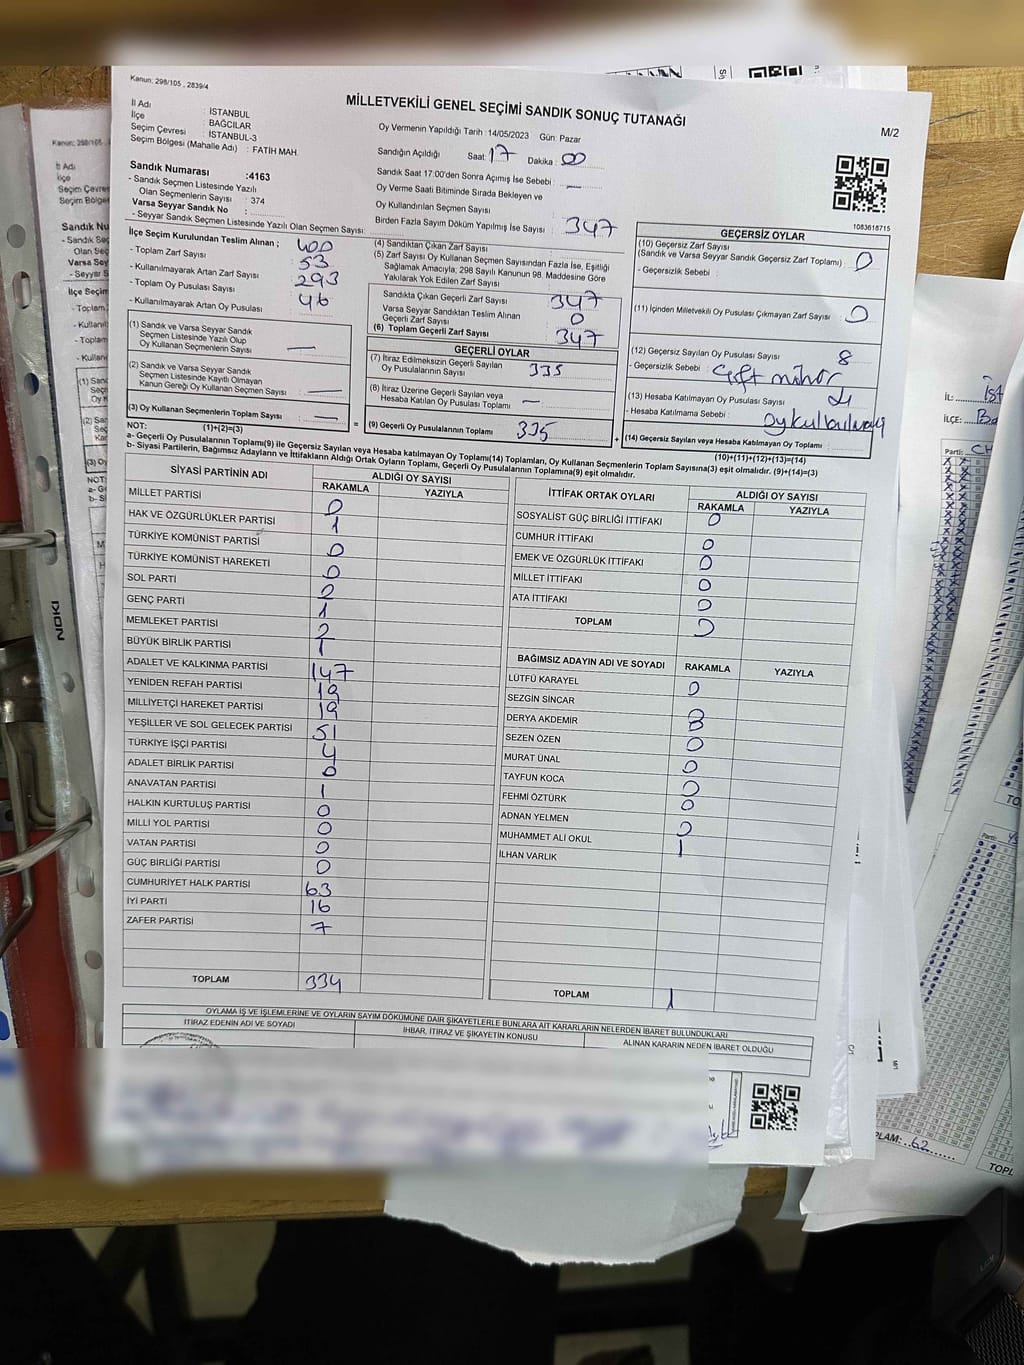 Kanun: 298/105 , 2839/4
MİLLETVEKİLİ GENEL SEÇİMİ SANDIK SONUÇ TUTANAĞI
M/2
İl Adı : İSTANBUL
İlçe : BAĞCILAR
Seçim Çevresi : İSTANBUL-3
Seçim Bölgesi (Mahalle Adı) : FATİH MAH.
Oy Vermenin Yapıldığı Tarih :14/05/2023 Gün: Pazar
Sandığın Açıldığı Saat: 17 Dakika : 00
Sandık Saat 17:00'den Sonra Açımış İse Sebebi : —
Oy Verme Saati Bitiminde Sırada Bekleyen ve
Oy Kullandırılan Seçmen Sayısı
Birden Fazla Sayım Döküm Yapılmış İse Sayısı : 347
1083618715
Sandık Numarası :4163
- Sandık Seçmen Listesinde Yazılı
Olan Seçmenlerin Sayısı : 374
Varsa Seyyar Sandık No :
- Seyyar Sandık Seçmen Listesinde Yazılı Olan Seçmen Sayısı:
İlçe Seçim Kurulundan Teslim Alınan ;
- Toplam Zarf Sayısı : 400
- Kullanılmayarak Artan Zarf Sayısı : 53
- Toplam Oy Pusulası Sayısı : 293
- Kullanılmayarak Artan Oy Pusulası : 46
(1) Sandık ve Varsa Seyyar Sandık
Seçmen Listesinde Yazılı Olup
Oy Kullanan Seçmenlerin Sayısı : —
(2) Sandık ve Varsa Seyyar Sandık
Seçmen Listesinde Kayıtlı Olmayan
Kanun Gereği Oy Kullanan Seçmen Sayısı : —
(3) Oy Kullanan Seçmenlerin Toplam Sayısı : —
(4) Sandıktan Çıkan Zarf Sayısı :
(5) Zarf Sayısı Oy Kullanan Seçmen Sayısından Fazla İse, Eşitliği
Sağlamak Amacıyla; 298 Sayılı Kanunun 98. Maddesine Göre
Yakılarak Yok Edilen Zarf Sayısı :
Sandıkta Çıkan Geçerli Zarf Sayısı : 347
Varsa Seyyar Sandıktan Teslim Alınan
Geçerli Zarf Sayısı : 0
(6) Toplam Geçerli Zarf Sayısı : 347
GEÇERLİ OYLAR
(7) İtiraz Edilmeksizin Geçerli Sayılan
Oy Pusulalarının Sayısı : 335
(8) İtiraz Üzerine Geçerli Sayılan veya
Hesaba Katılan Oy Pusulası Toplamı : —
(9) Geçerli Oy Pusulalarının Toplamı : 335
GEÇERSİZ OYLAR
(10) Geçersiz Zarf Sayısı
(Sandık ve Varsa Seyyar Sandık Geçersiz Zarf Toplamı) : 0
- Geçersizlik Sebebi :
(11) İçinden Milletvekili Oy Pusulası Çıkmayan Zarf Sayısı : 0
(12) Geçersiz Sayılan Oy Pusulası Sayısı : 8
- Geçersizlik Sebebi : Çift mühür
(13) Hesaba Katılmayan Oy Pusulası Sayısı : 4
- Hesaba Katılmama Sebebi :
(14) Geçersiz Sayılan veya Hesaba Katılmayan Oy Toplamı :
(1)+(2)=(3)
(10)+(11)+(12)+(13)=(14)
NOT:
a- Geçerli Oy Pusulalarının Toplamı(9) ile Geçersiz Sayılan veya Hesaba katılmayan Oy Toplamı(14) Toplamları, Oy Kullanan Seçmenlerin Toplam Sayısına(3) eşit olmalıdır. (9)+(14)=(3)
b- Siyasi Partilerin, Bağımsız Adayların ve İttifakların Aldığı Ortak Oyların Toplamı, Geçerli Oy Pusulalarının Toplamına(9) eşit olmalıdır.
SİYASİ PARTİNİN ADI ALDIĞI OY SAYISI
RAKAMLA YAZIYLA
MİLLET PARTİSİ 0
HAK VE ÖZGÜRLÜKLER PARTİSİ 1
TÜRKİYE KOMÜNİST PARTİSİ 0
TÜRKİYE KOMÜNİST HAREKETİ 0
SOL PARTİ 2
GENÇ PARTİ 1
MEMLEKET PARTİSİ 2
BÜYÜK BİRLİK PARTİSİ 1
ADALET VE KALKINMA PARTİSİ 147
YENİDEN REFAH PARTİSİ 19
MİLLİYETÇİ HAREKET PARTİSİ 19
YEŞİLLER VE SOL GELECEK PARTİSİ 51
TÜRKİYE İŞÇİ PARTİSİ 4
ADALET BİRLİK PARTİSİ 0
ANAVATAN PARTİSİ 1
HALKIN KURTULUŞ PARTİSİ 0
MİLLİ YOL PARTİSİ 0
VATAN PARTİSİ 0
GÜÇ BİRLİĞİ PARTİSİ 0
CUMHURİYET HALK PARTİSİ 63
İYİ PARTİ 16
ZAFER PARTİSİ 7
TOPLAM 334
İTTİFAK ORTAK OYLARI ALDIĞI OY SAYISI
RAKAMLA YAZIYLA
SOSYALİST GÜÇ BİRLİĞİ İTTİFAKI 0
CUMHUR İTTİFAKI 0
EMEK VE ÖZGÜRLÜK İTTİFAKI 0
MİLLET İTTİFAKI 0
ATA İTTİFAKI 0
TOPLAM 0
BAĞIMSIZ ADAYIN ADI VE SOYADI RAKAMLA YAZIYLA
LÜTFÜ KARAYEL 0
SEZGİN SİNCAR 0
DERYA AKDEMİR 0
SEZEN ÖZEN 0
MURAT ÜNAL 0
TAYFUN KOCA 0
FEHMİ ÖZTÜRK 0
ADNAN YELMEN 0
MUHAMMET ALİ OKUL 1
İLHAN VARLIK
TOPLAM 1
OYLAMA İŞ VE İŞLEMLERİNE VE OYLARIN SAYIM DÖKÜMÜNE DAİR ŞİKAYETLERLE BUNLARA AİT KARARLARIN NELERDEN İBARET BULUNDUKLARI
İTİRAZ EDENİN ADI VE SOYADI İHBAR, İTİRAZ VE ŞİKAYETİN KONUSU ALINAN KARARIN NEDEN İBARET OLDUĞU
NOKI
İL:
İLÇE:
Parti: CH
TOPLAM: 62
TOPL